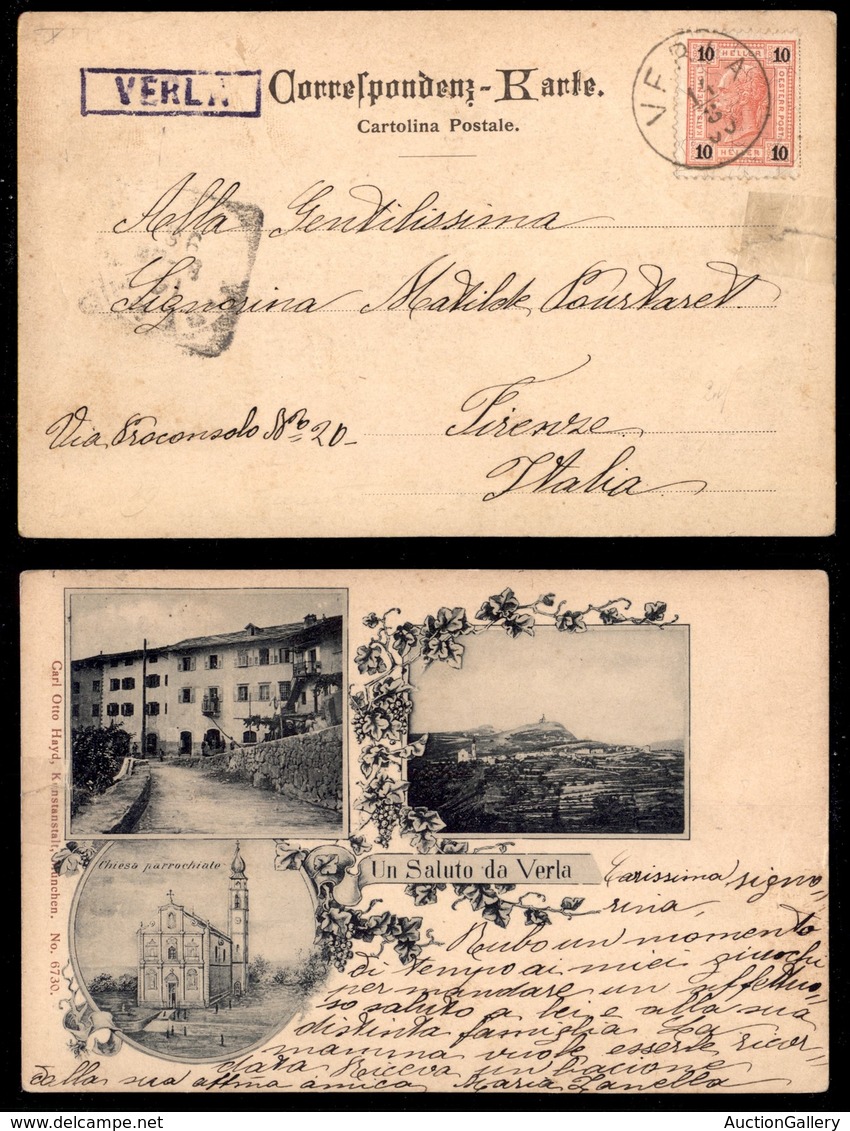 VERLA
Correspondenz-Karte.
Cartolina Postale.
VERLA
14
8
10 HELLER 10
OESTERR. POST
10 HELLER 10
Alla Gentilissima
Signorina Matilde Pourtaret.
Via Proconsolo No 20-
Firenze
Italia
Carl Otto Hayd, Kunstanstalt, München. No. 6730.
Chiesa parrochiale
Un Saluto da Verla
Carissima signo-
rina,
Rubo un momento
di tempo ai miei giuochi
per mandare un affettuo-
so saluto a lei e alla sua
distinta famiglia La
mamma vuole essere ricor-
data Riceva un bacione
dalla sua affma amica Maria Zanella
AuctionGallery